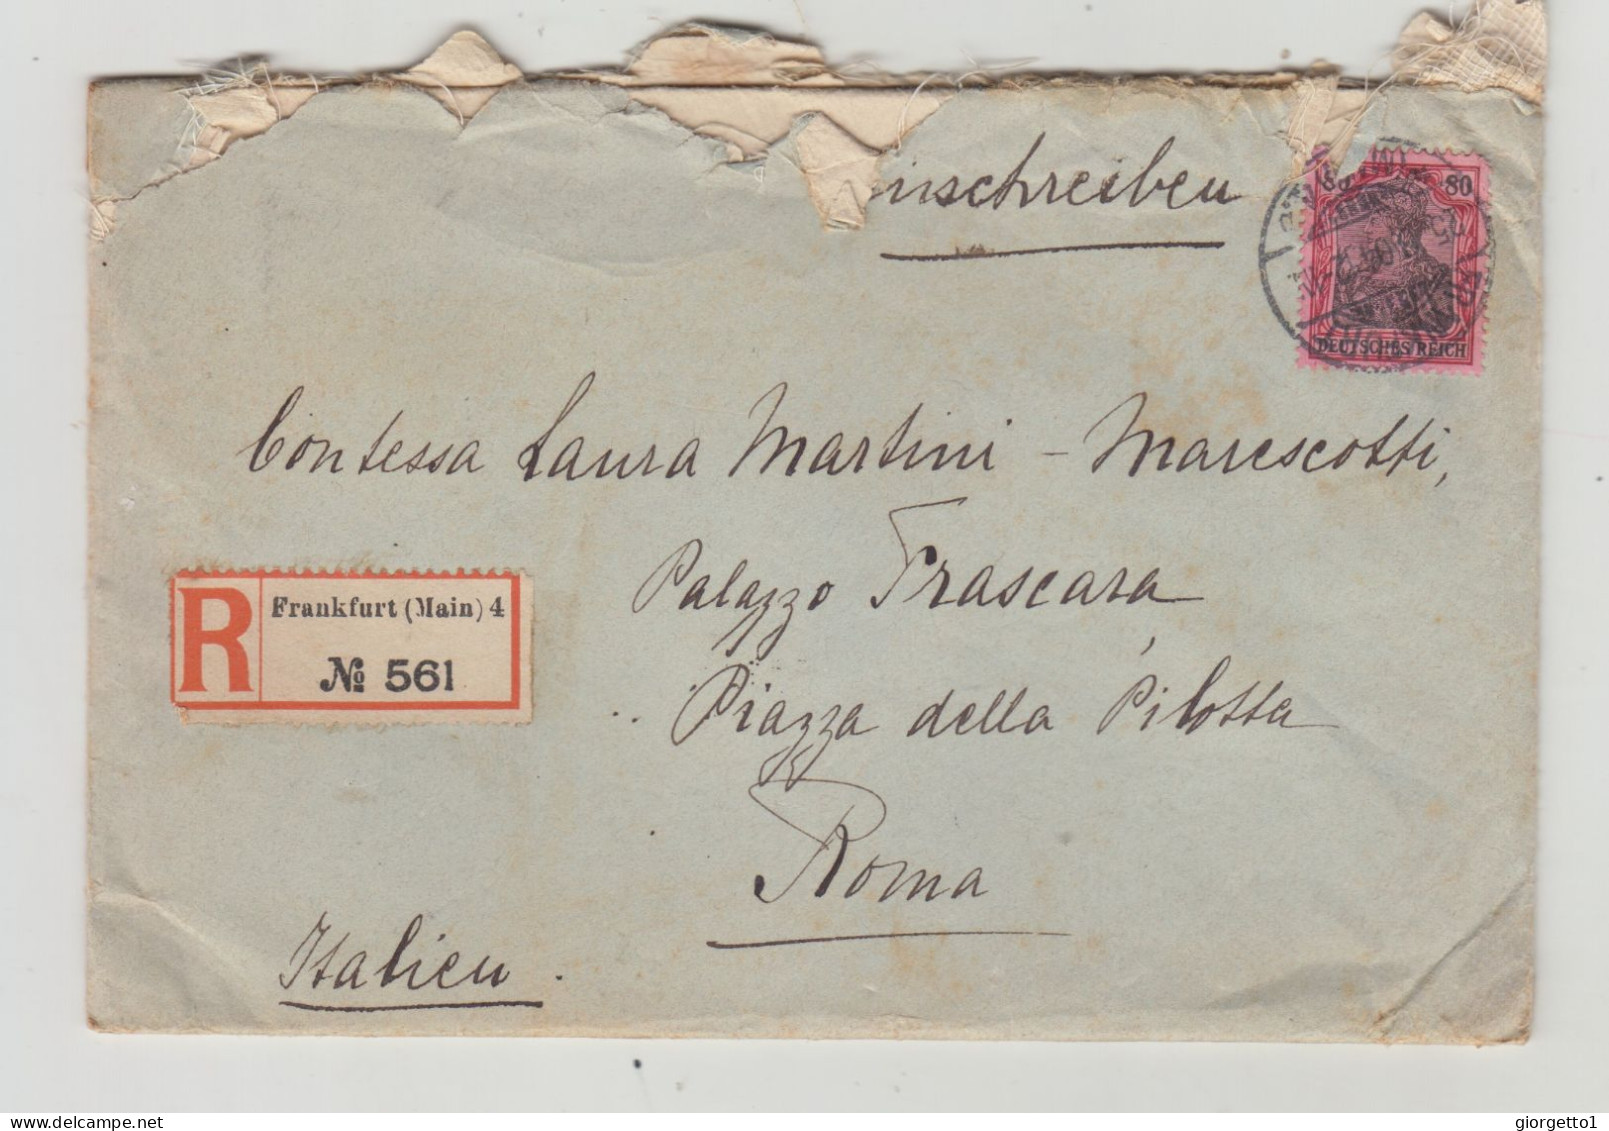 inschreiben
80
DEUTSCHES REICH
Contessa Laura Martini - Marescotti,
Palazzo Frascara
Piazza della Pilotta
Roma
Italien.
R
Frankfurt (Main) 4
№ 561
delcampe.net
giorgetto1